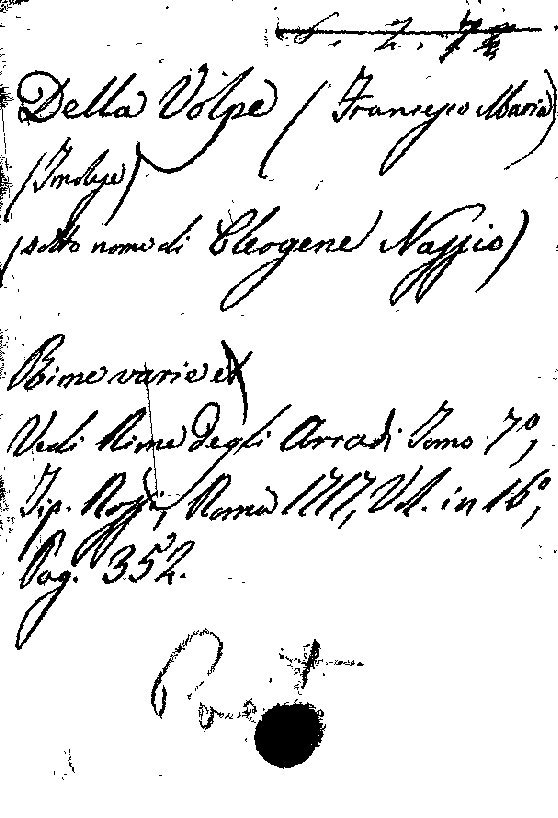 6. 2. 7
Della Volpe (Francesco Maria)
(Imolese)
(sotto nome di Cleogene Nassio)
Rime varie
Vedi Rime degli Arcadi Tomo 7º,
Tip. Rossi, Roma 1717, Vol. in 16º,
Pag. 352.